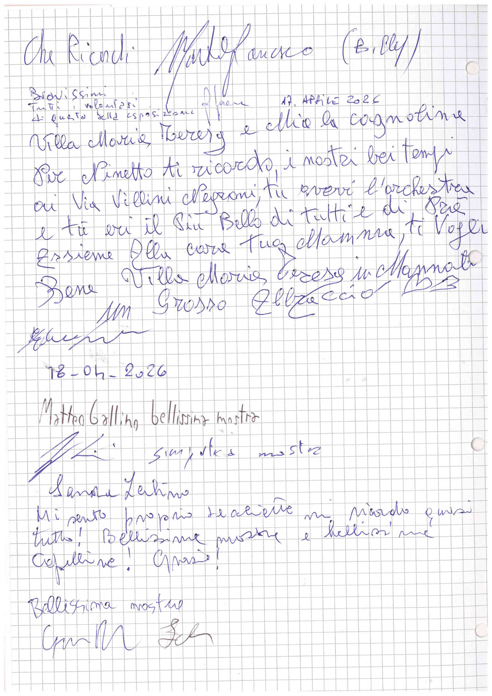 Che Ricordi (Billy)
Bravissimi
Tutti i volontari
di questa bella esposizione 17. APRILE 2026
Villa Maria Teresa e Mia la cagnolina
Per Ninetto ti ricordo, i nostri bei tempi
Via Villini Negroni, tu avevi l'orchestra
e tu eri il Più Bello di tutti e di Più
Assieme Alla cara tua Mamma, ti Voglio
Bene Villa Maria Teresa in Mannati
Un Grosso Abbraccio
18-04-2026
Matteo Gallino bellissima mostra
mostra
Sandra
Mi sento proprio mi ricordo quasi
tutto! Bellissima mostra e bellissime
Grazie!
Bellissima mostra